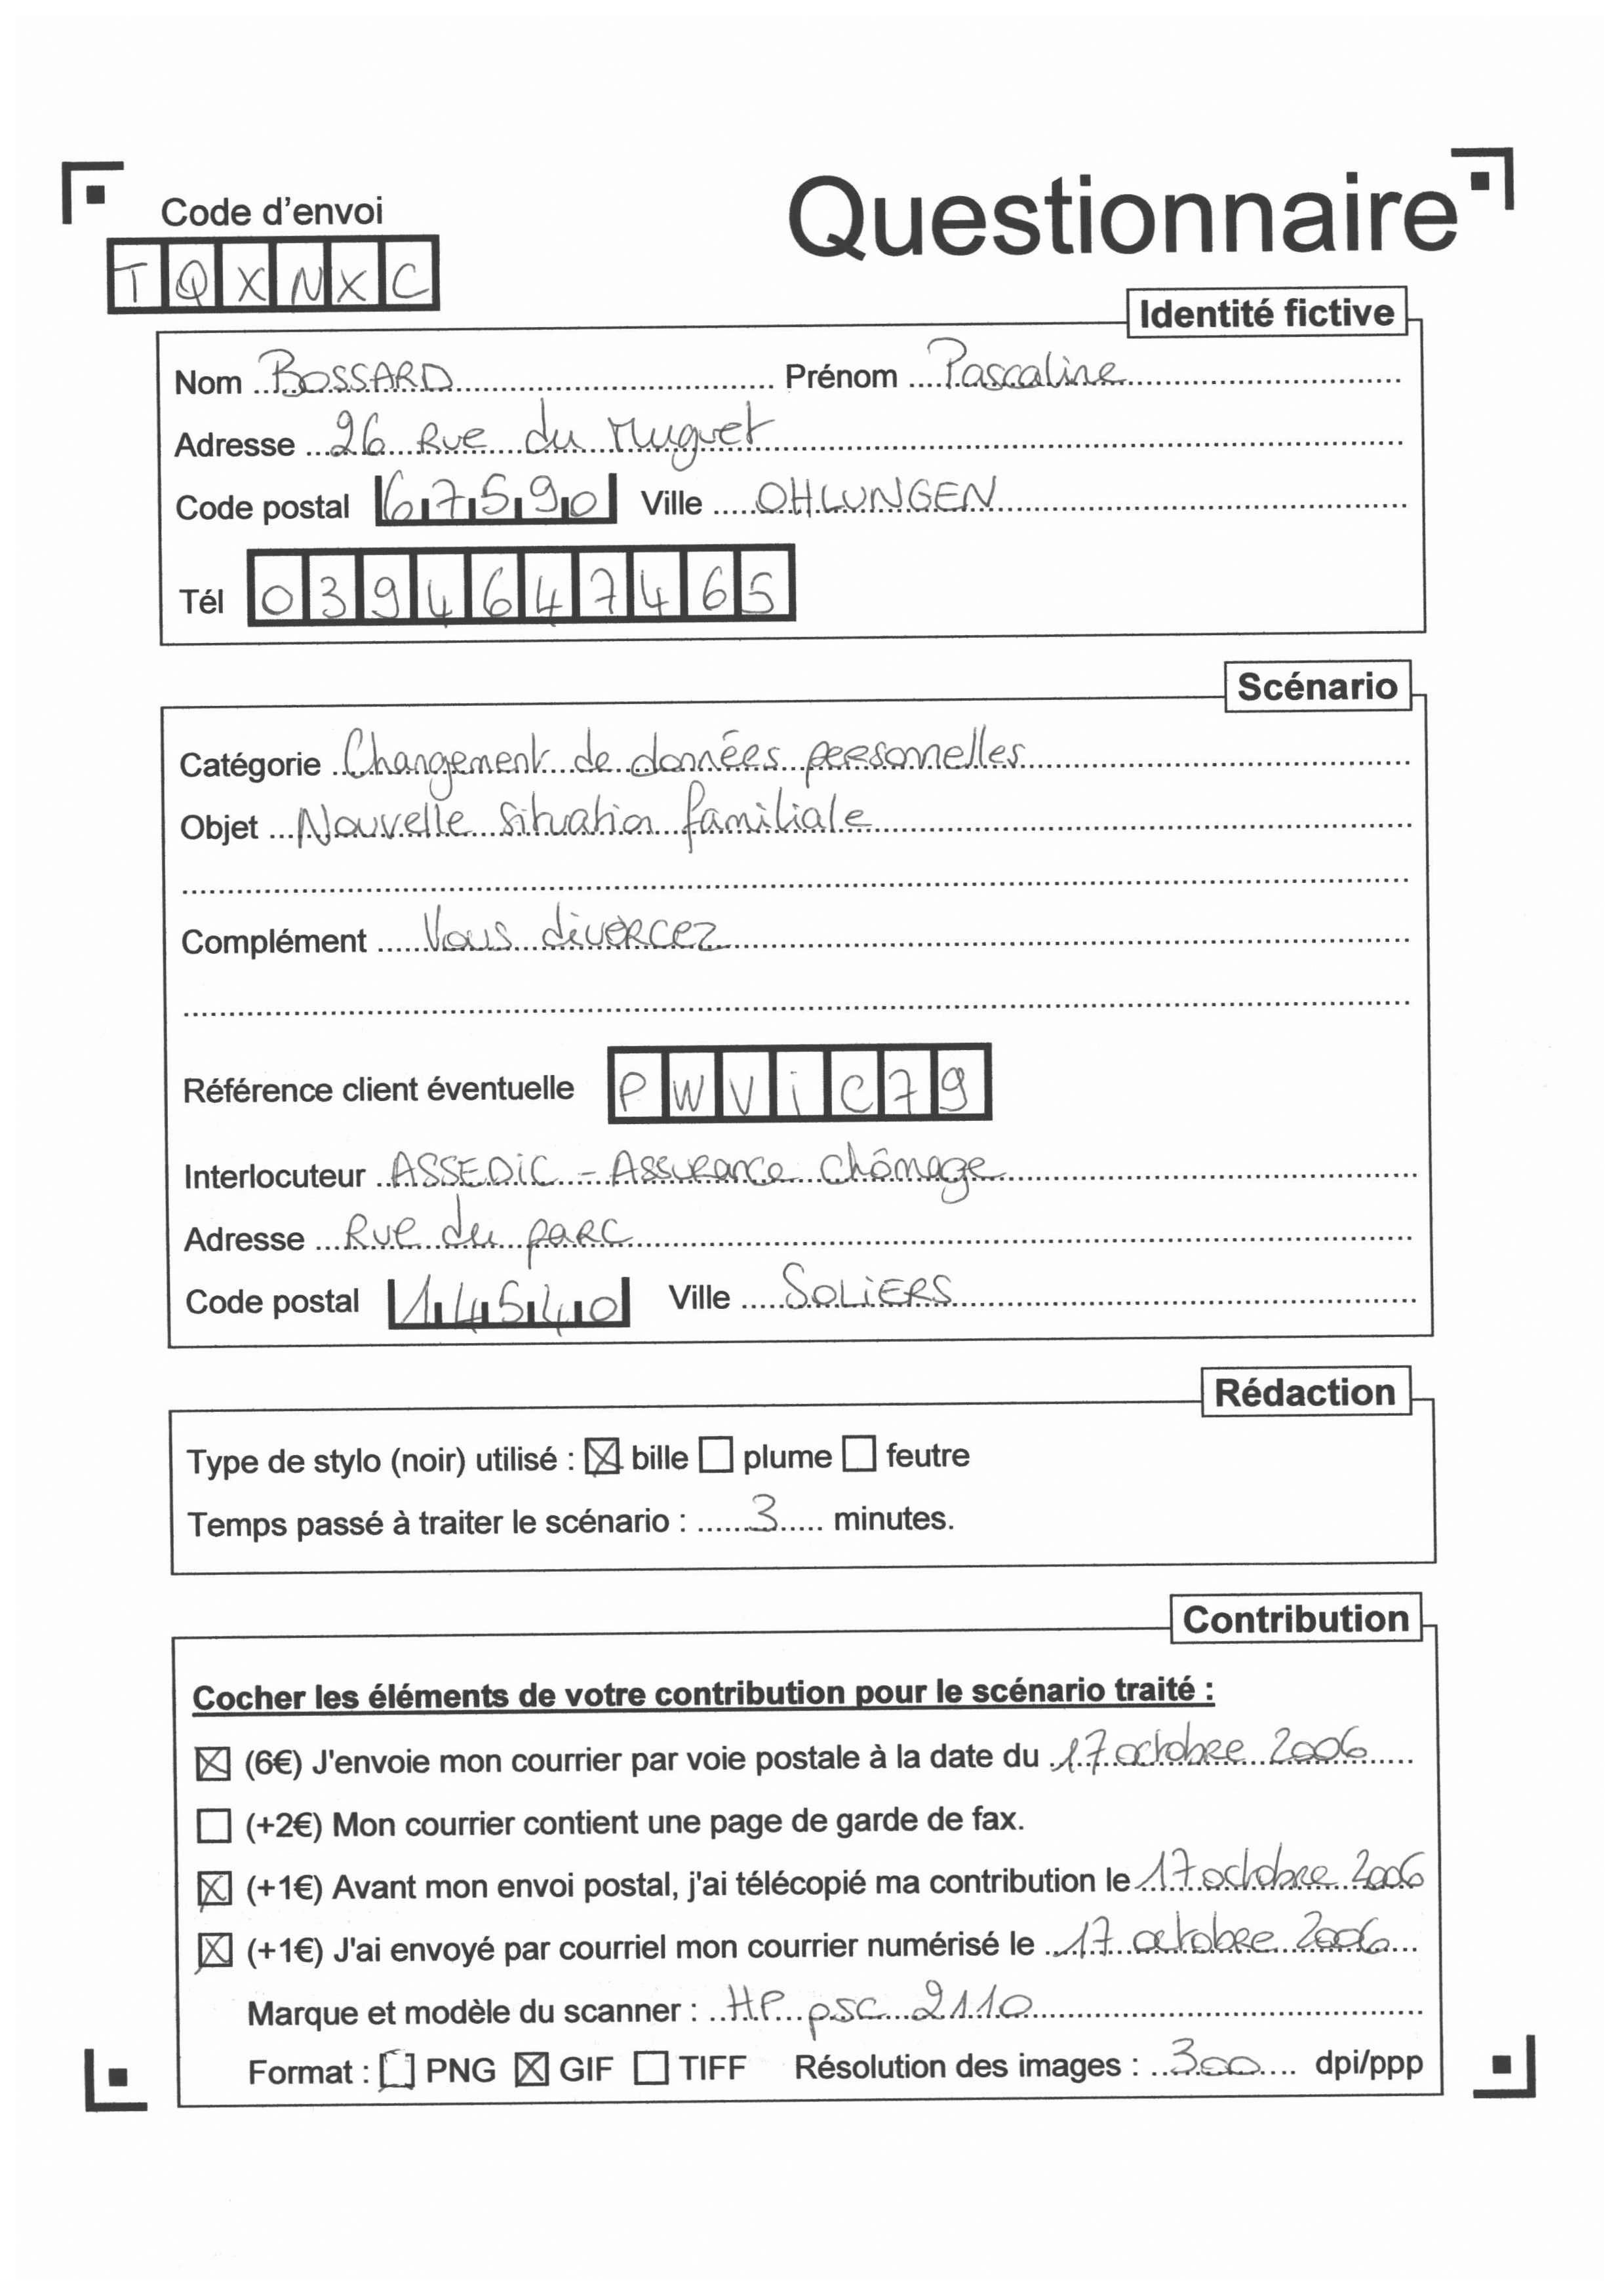 Questionnaire
Code d'envoi
TQXNXC
Identité fictive
Nom BOSSARD Prénom Pascaline
Adresse 26 Rue du Muguet
Code postal 67590 Ville OHLUNGEN
Tél 0394647465
Scénario
Catégorie Changement de données personnelles
Objet Nouvelle situation familiale
Complément Vous divorcez
Référence client éventuelle PWViC79
Interlocuteur ASSEDiC - Assurance chômage
Adresse Rue du parc
Code postal 14540 Ville SOLiERS
Rédaction
Type de stylo (noir) utilisé : ☒ bille ☐ plume ☐ feutre
Temps passé à traiter le scénario : 3 minutes.
Contribution
Cocher les éléments de votre contribution pour le scénario traité :
☒ (6€) J'envoie mon courrier par voie postale à la date du 17 octobre 2006
☐ (+2€) Mon courrier contient une page de garde de fax.
☒ (+1€) Avant mon envoi postal, j'ai télécopié ma contribution le 17 octobre 2006
☒ (+1€) J'ai envoyé par courriel mon courrier numérisé le 17 octobre 2006
Marque et modèle du scanner : HP psc 2110
Format : ☐ PNG ☒ GIF ☐ TIFF Résolution des images : 300 dpi/ppp